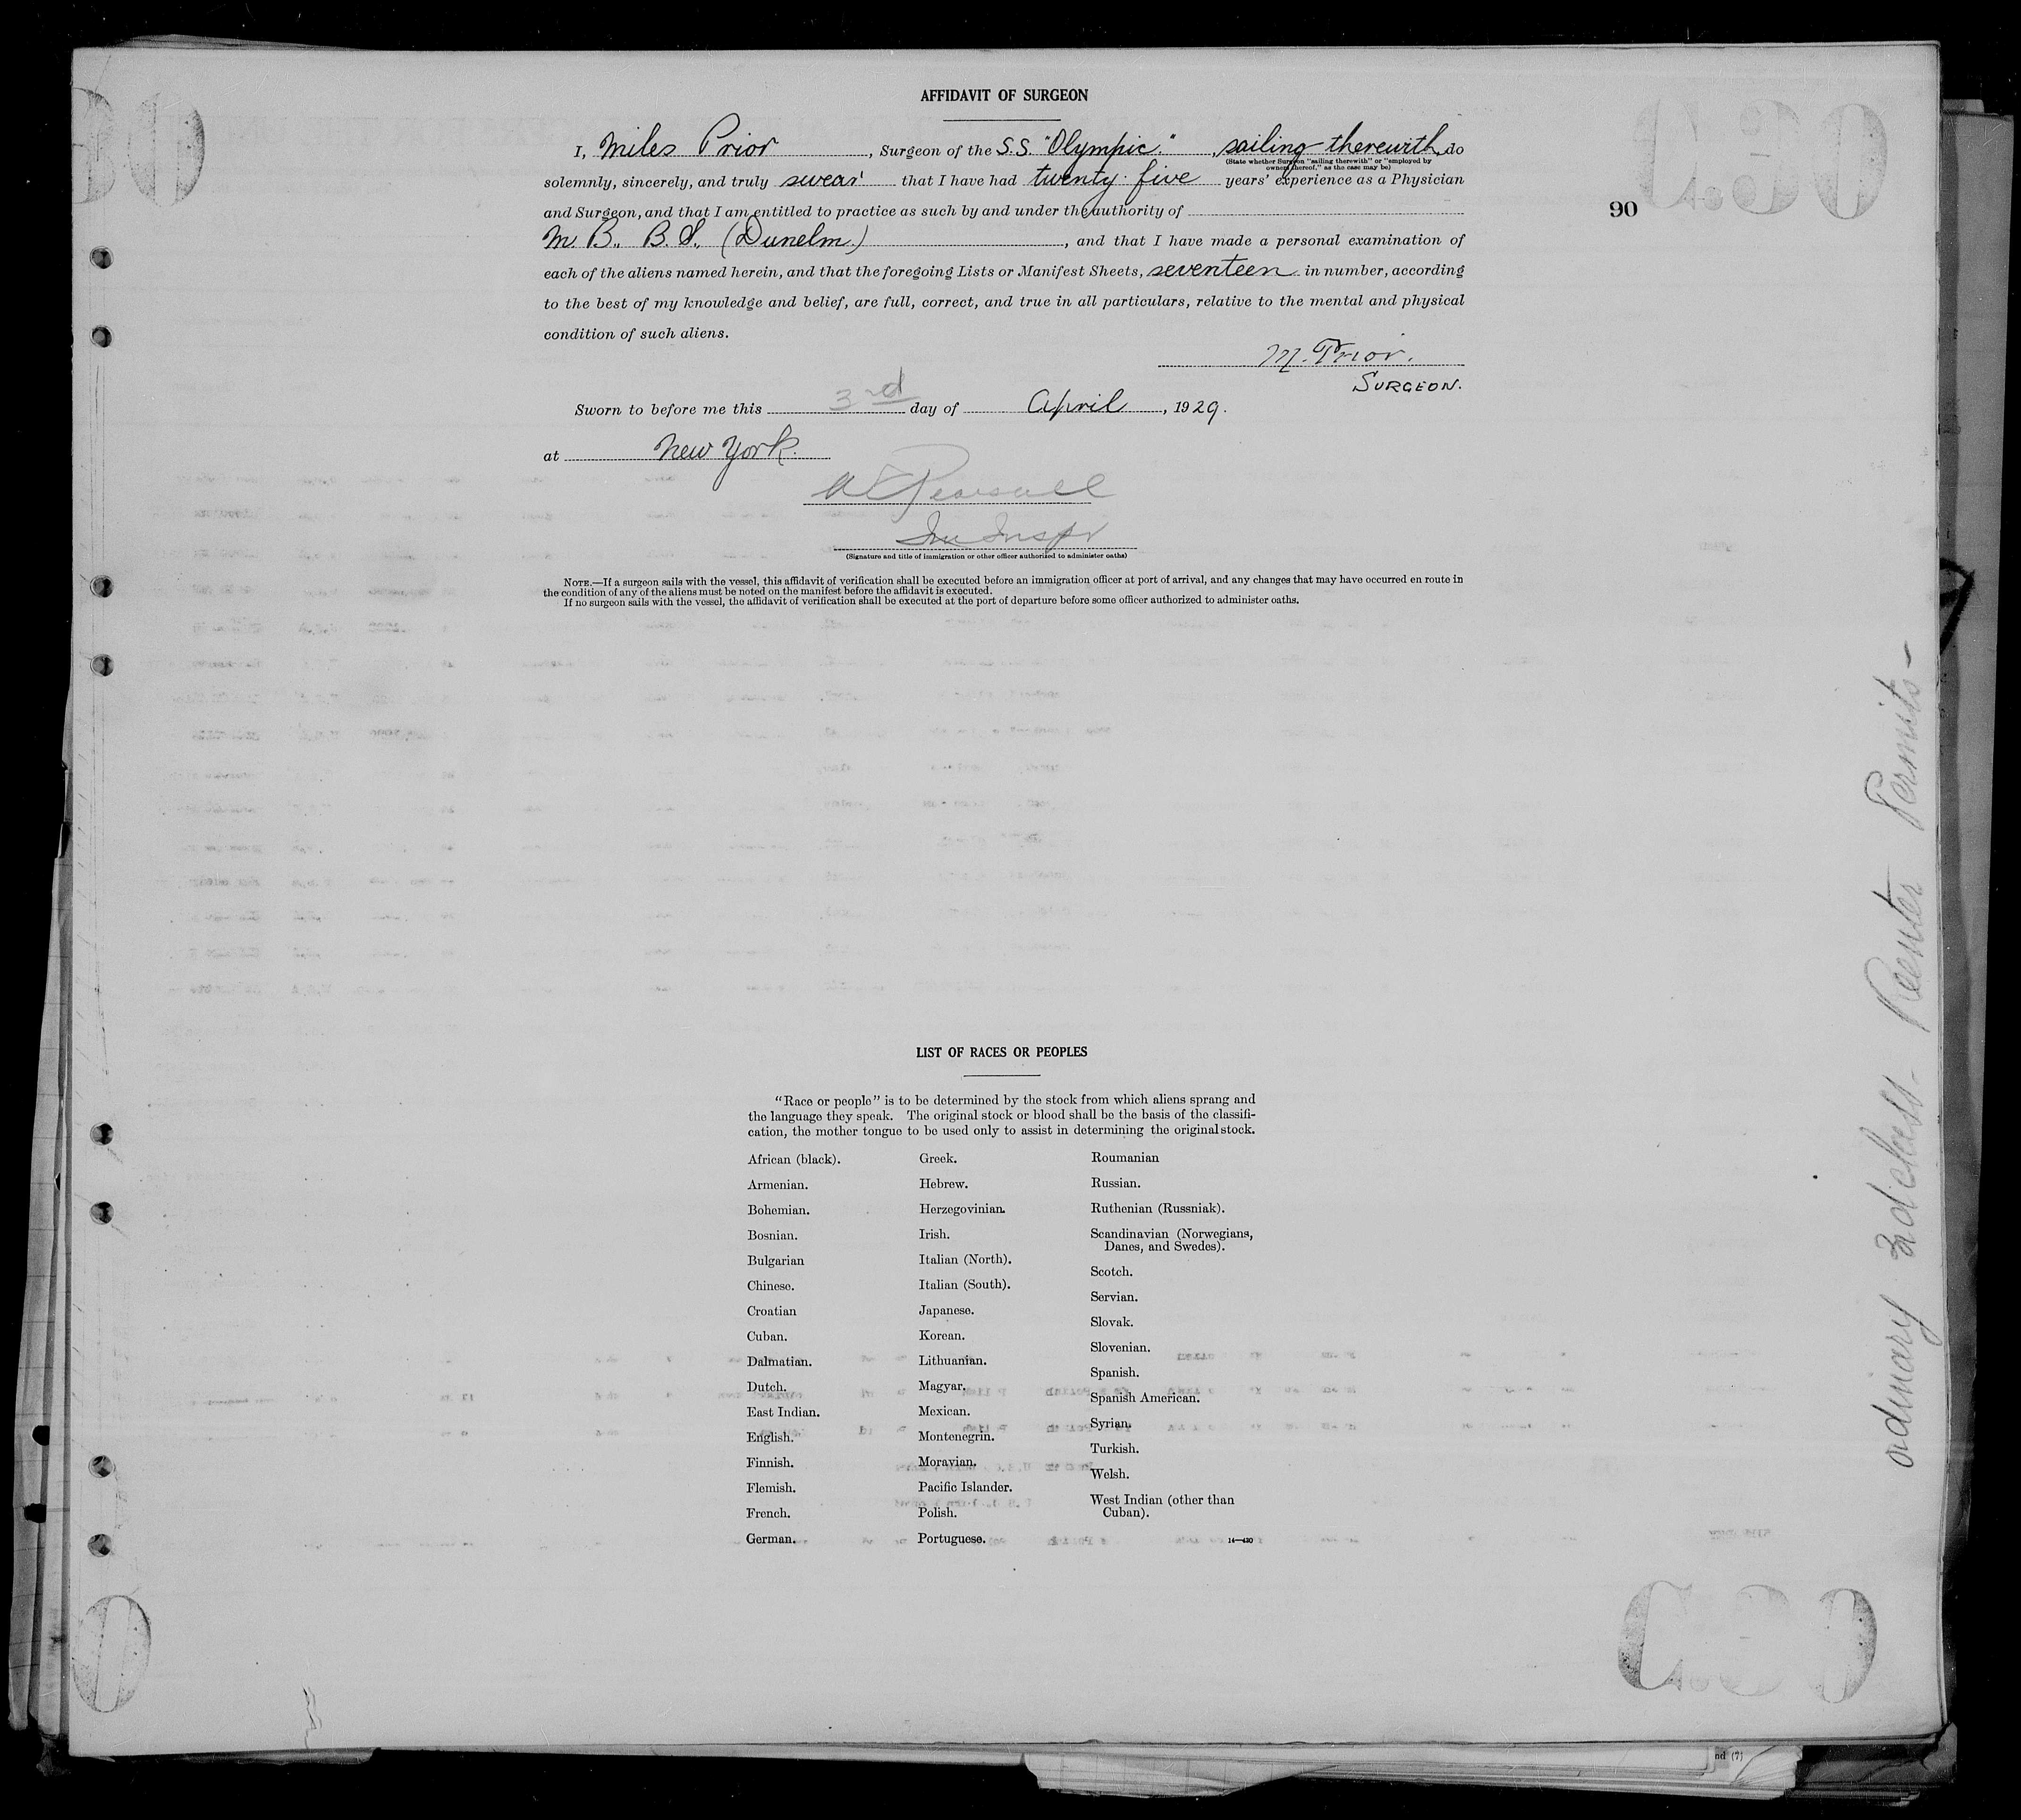 AFFIDAVIT OF SURGEON
I, Miles Prior, Surgeon of the S.S. "Olympic.", sailing therewith, do
(State whether Surgeon "sailing therewith" or "employed by
owners thereof," as the case may be)
solemnly, sincerely, and truly swear that I have had twenty five years' experience as a Physician
and Surgeon, and that I am entitled to practice as such by and under the authority of
M.B., B.S., (Dunelm.), and that I have made a personal examination of
90
each of the aliens named herein, and that the foregoing Lists or Manifest Sheets, seventeen in number, according
to the best of my knowledge and belief, are full, correct, and true in all particulars, relative to the mental and physical
condition of such aliens.
M. Prior.
SURGEON.
Sworn to before me this 3rd day of April, 1929.
at New York.
Pearsall
Im Inspr
(Signature and title of immigration or other officer authorized to administer oaths)
NOTE.—If a surgeon sails with the vessel, this affidavit of verification shall be executed before an immigration officer at port of arrival, and any changes that may have occurred en route in
the condition of any of the aliens must be noted on the manifest before the affidavit is executed.
If no surgeon sails with the vessel, the affidavit of verification shall be executed at the port of departure before some officer authorized to administer oaths.
LIST OF RACES OR PEOPLES
"Race or people" is to be determined by the stock from which aliens sprang and
the language they speak. The original stock or blood shall be the basis of the classifi-
cation, the mother tongue to be used only to assist in determining the original stock.
African (black).
Armenian.
Bohemian.
Bosnian.
Bulgarian
Chinese.
Croatian
Cuban.
Dalmatian.
Dutch.
East Indian.
English.
Finnish.
Flemish.
French.
German.
Greek.
Hebrew.
Herzegovinian.
Irish.
Italian (North).
Italian (South).
Japanese.
Korean.
Lithuanian.
Magyar.
Mexican.
Montenegrin.
Moravian.
Pacific Islander.
Polish.
Portuguese.
Roumanian
Russian.
Ruthenian (Russniak).
Scandinavian (Norwegians,
Danes, and Swedes).
Scotch.
Servian.
Slovak.
Slovenian.
Spanish.
Spanish American.
Syrian.
Turkish.
Welsh.
West Indian (other than
Cuban).
14—430
ordinary 3d class - Reenter Permits -
nd (7)